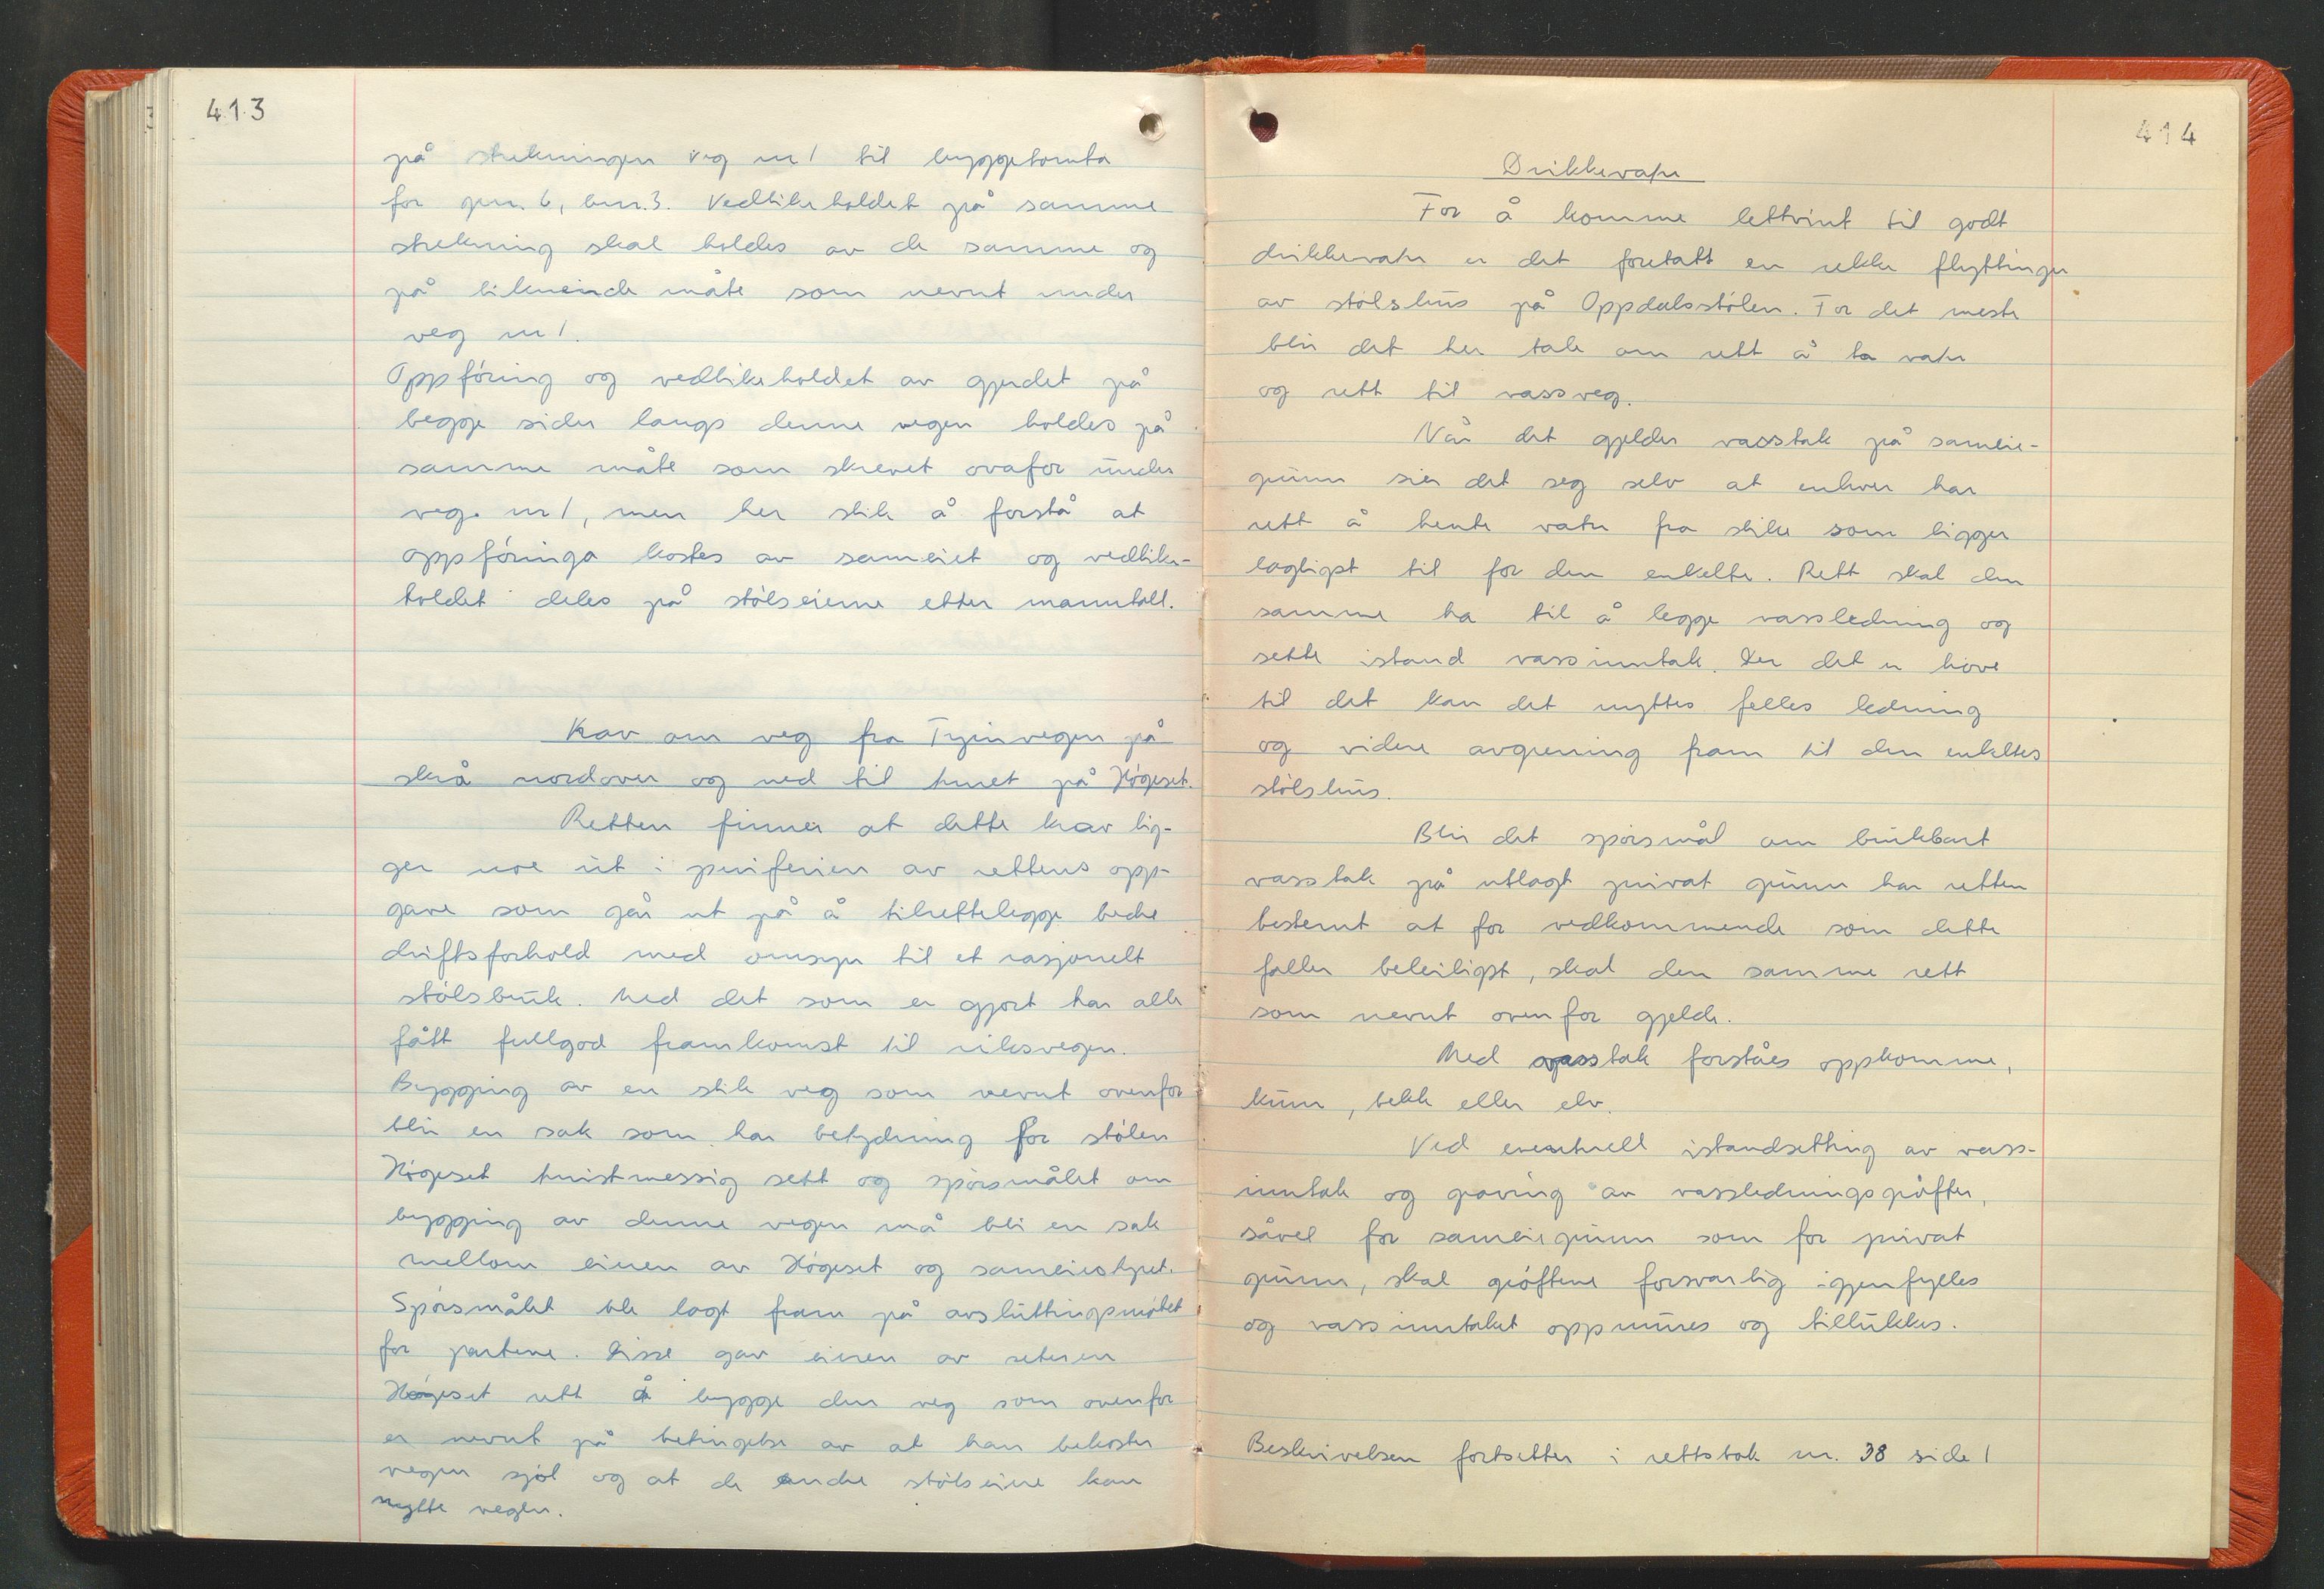 413
på strekningen veg nr 1 til byggetomta
for gnr. 6, bnr. 3. Vedlikeholdet på samme
strekning skal holdes av de samme og
på liknende måte som nevnt under
veg nr 1.
Oppføring og vedlikeholdet av gjerdet på
begge sider langs denne vegen holdes på
samme måte som skrevet ovafor under
veg. nr 1, men her slik å forstå at
oppføringa kostes av sameiet og vedlike-
holdet deles på stølseierne etter manntall.
Krav om veg fra Tyinvegen på
skrå nordover og ned til tunet på Høgeset.
Retten finner at dette krav lig-
ger noe ut i periferien av rettens opp-
gave som går ut på å tilrettelegge bedre
driftsforhold med omsyn til et rasjonelt
stølsbruk. Med det som er gjort har alle
fått fullgod framkomst til riksvegen.
Bygging av en slik veg som nevnt ovenfor
blir en sak som har betydning for stølen
Høgeset turistmessig sett og spørsmålet om
bygging av denne vegen må bli en sak
mellom eieren av Høgeset og sameiestyret.
Spørsmålet ble lagt fram på avsluttingsmøtet
for partene. Disse gav eieren av seteren
Høgeset rett å bygge den veg som ovenfor
er nevnt på betingelse av at han bekoster
vegen sjøl og at de andre stølseiere kan
nytte vegen.
414
Drikkevatn
For å komme lettvint til godt
drikkevatn er det foretatt en rekke flyttinger
av stølshus på Oppdalsstølen. For det meste
blir det her tale om rett å ta vatn
og rett til vassveg.
Når det gjelder vasstak på sameie-
grunn sier det seg selv at enhver har
rett å hente vatn fra slike som ligger
lagligst til for den enkelte. Rett skal den
samme ha til å legge vassledning og
sette istand vassinntak. Der det er høve
til det kan det nyttes felles ledning
og videre avgrening fram til den enkeltes
stølshus.
Blir det spørsmål om brukbart
vasstak på utlagt privat grunn har retten
bestemt at for vedkommende som dette
faller beleiligst, skal den samme rett
som nevnt ovenfor gjelde.
Med vasstak forståes oppkomme,
brunn, bekk eller elv.
Ved eventuell istandsetting av vass-
inntak og graving av vassledningsgrøfter,
såvel for sameiegrunn som for privat
grunn, skal grøftene forsvarlig igjenfylles
og vassinntaket oppmures og tillukkes.
Beskrivelsen fortsetter i rettsbok nr. 38 side 1